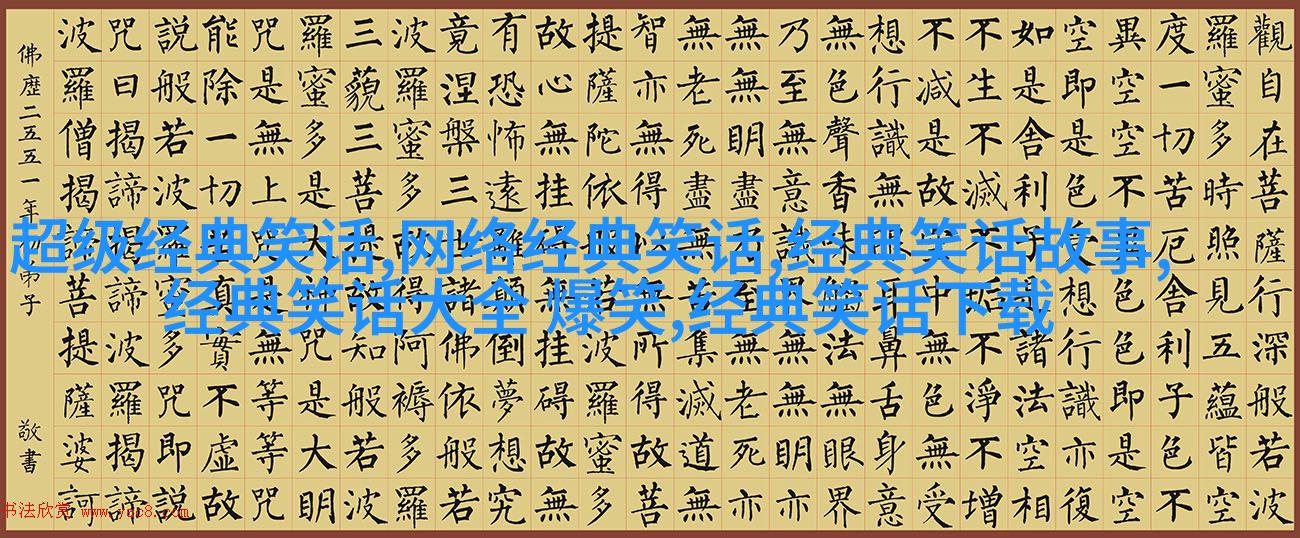 超级经典笑话,网络经典笑话,经典笑话故事,
经典笑话大全 爆笑,经典笑话下载
觀自在菩薩行深般若波
羅蜜多時照見五蘊皆空
度一切苦厄舍利子色不
異空空不異色色即是空
空即是色受想行識亦復
如是舍利子是諸法空相
不生不滅不垢不淨不增
不減是故空中無色無受
想行識無眼耳鼻舌身意
無色聲香味觸法無眼界
乃至無意識界無無明亦
無無明盡乃至無老死亦
無老死盡無苦集滅道無
智亦無得以無所得故菩
提薩陀依般若波羅蜜多
故心無挂碍無挂碍故無
有恐怖遠離顛倒夢想究
竟涅槃三世諸佛依般若
波羅蜜多故得阿褥多羅
三藐三菩提故知般若波
羅蜜多是大神咒是大明
咒是無上咒是無等等咒
能除一切苦真實不虛故
說般若波羅蜜多咒即說
咒曰揭諦揭諦波羅揭諦
波羅僧揭諦菩提薩婆訶
佛歷二五五一年 弟子 敬書
书法欣赏 www.yac8.com